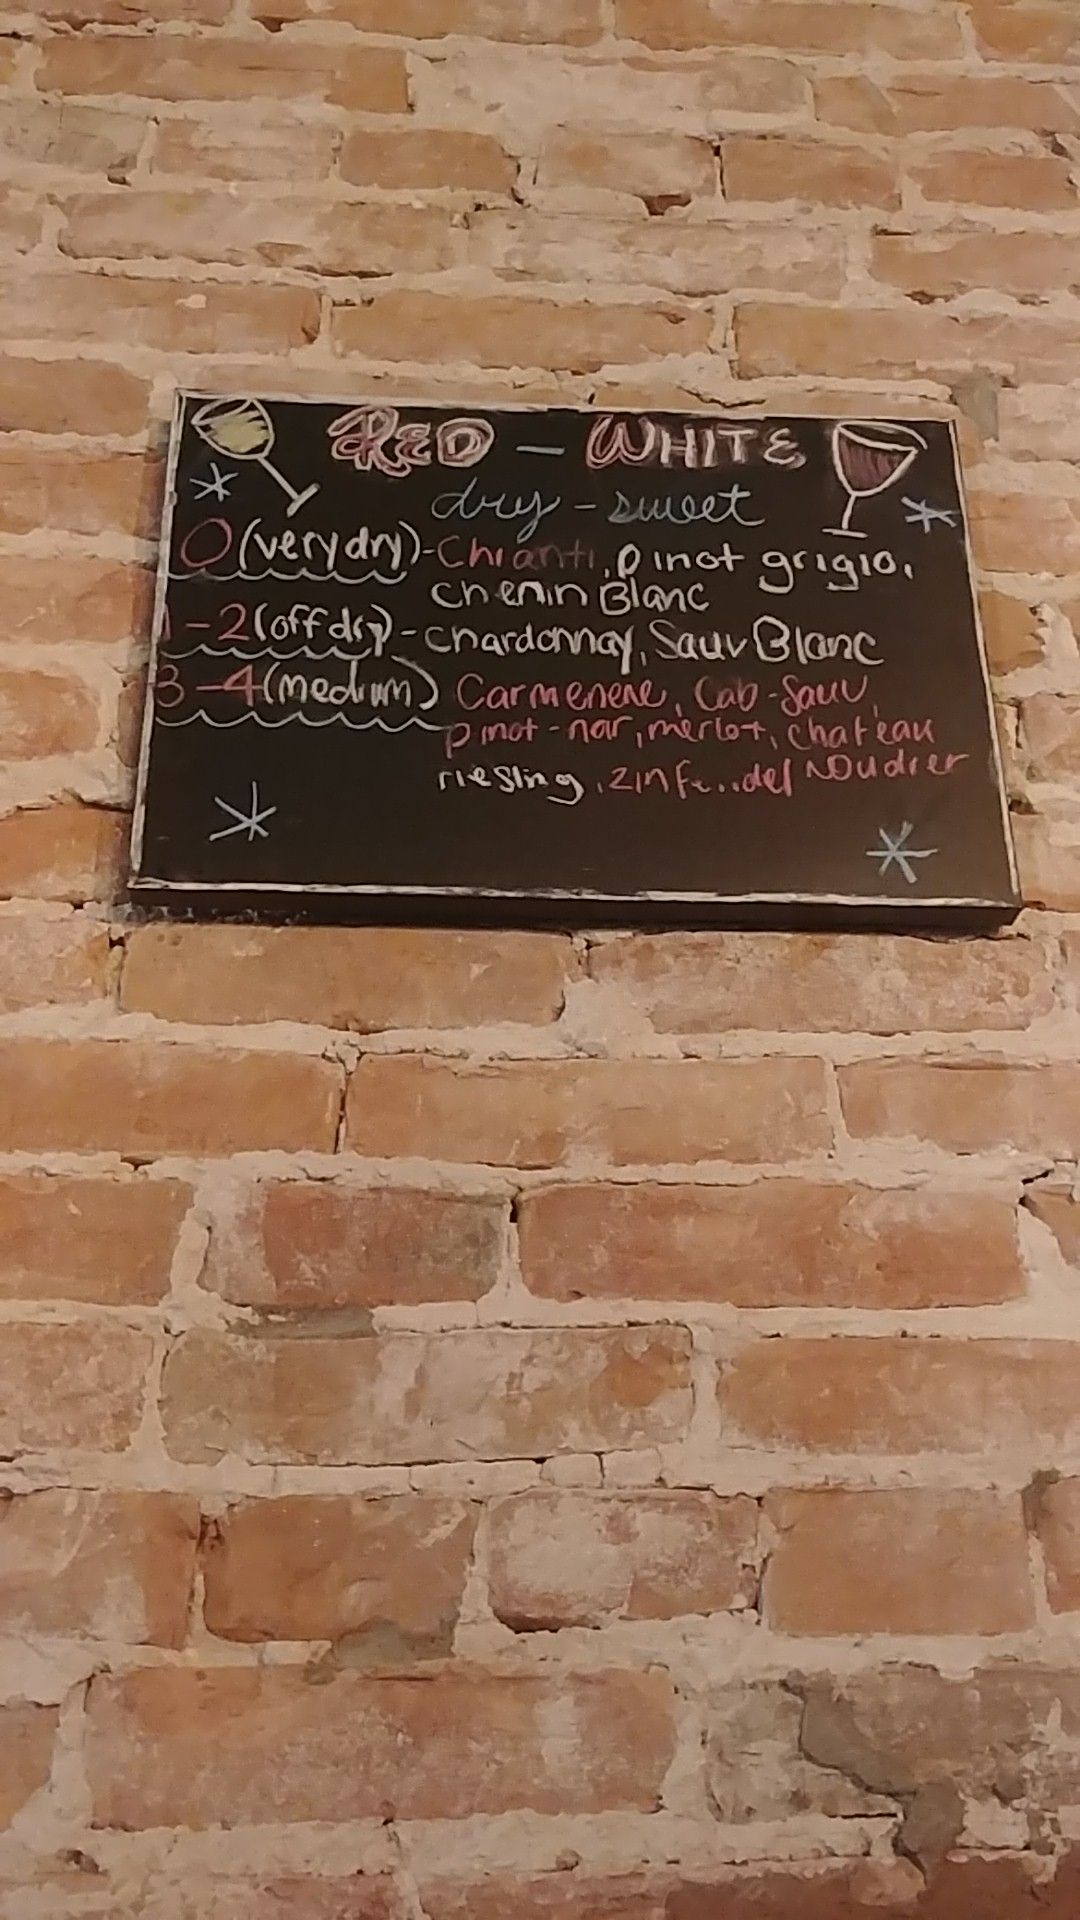 RED - WHITE
dry - sweet
0 (very dry) - Chianti, pinot grigio,
chenin Blanc
1-2 (off dry) - chardonnay, Sauv Blanc
3-4 (medium) Carmenere, Cab-Sauv,
pinot-noir, merlot, chateau
riesling, zinf...del Noudrer